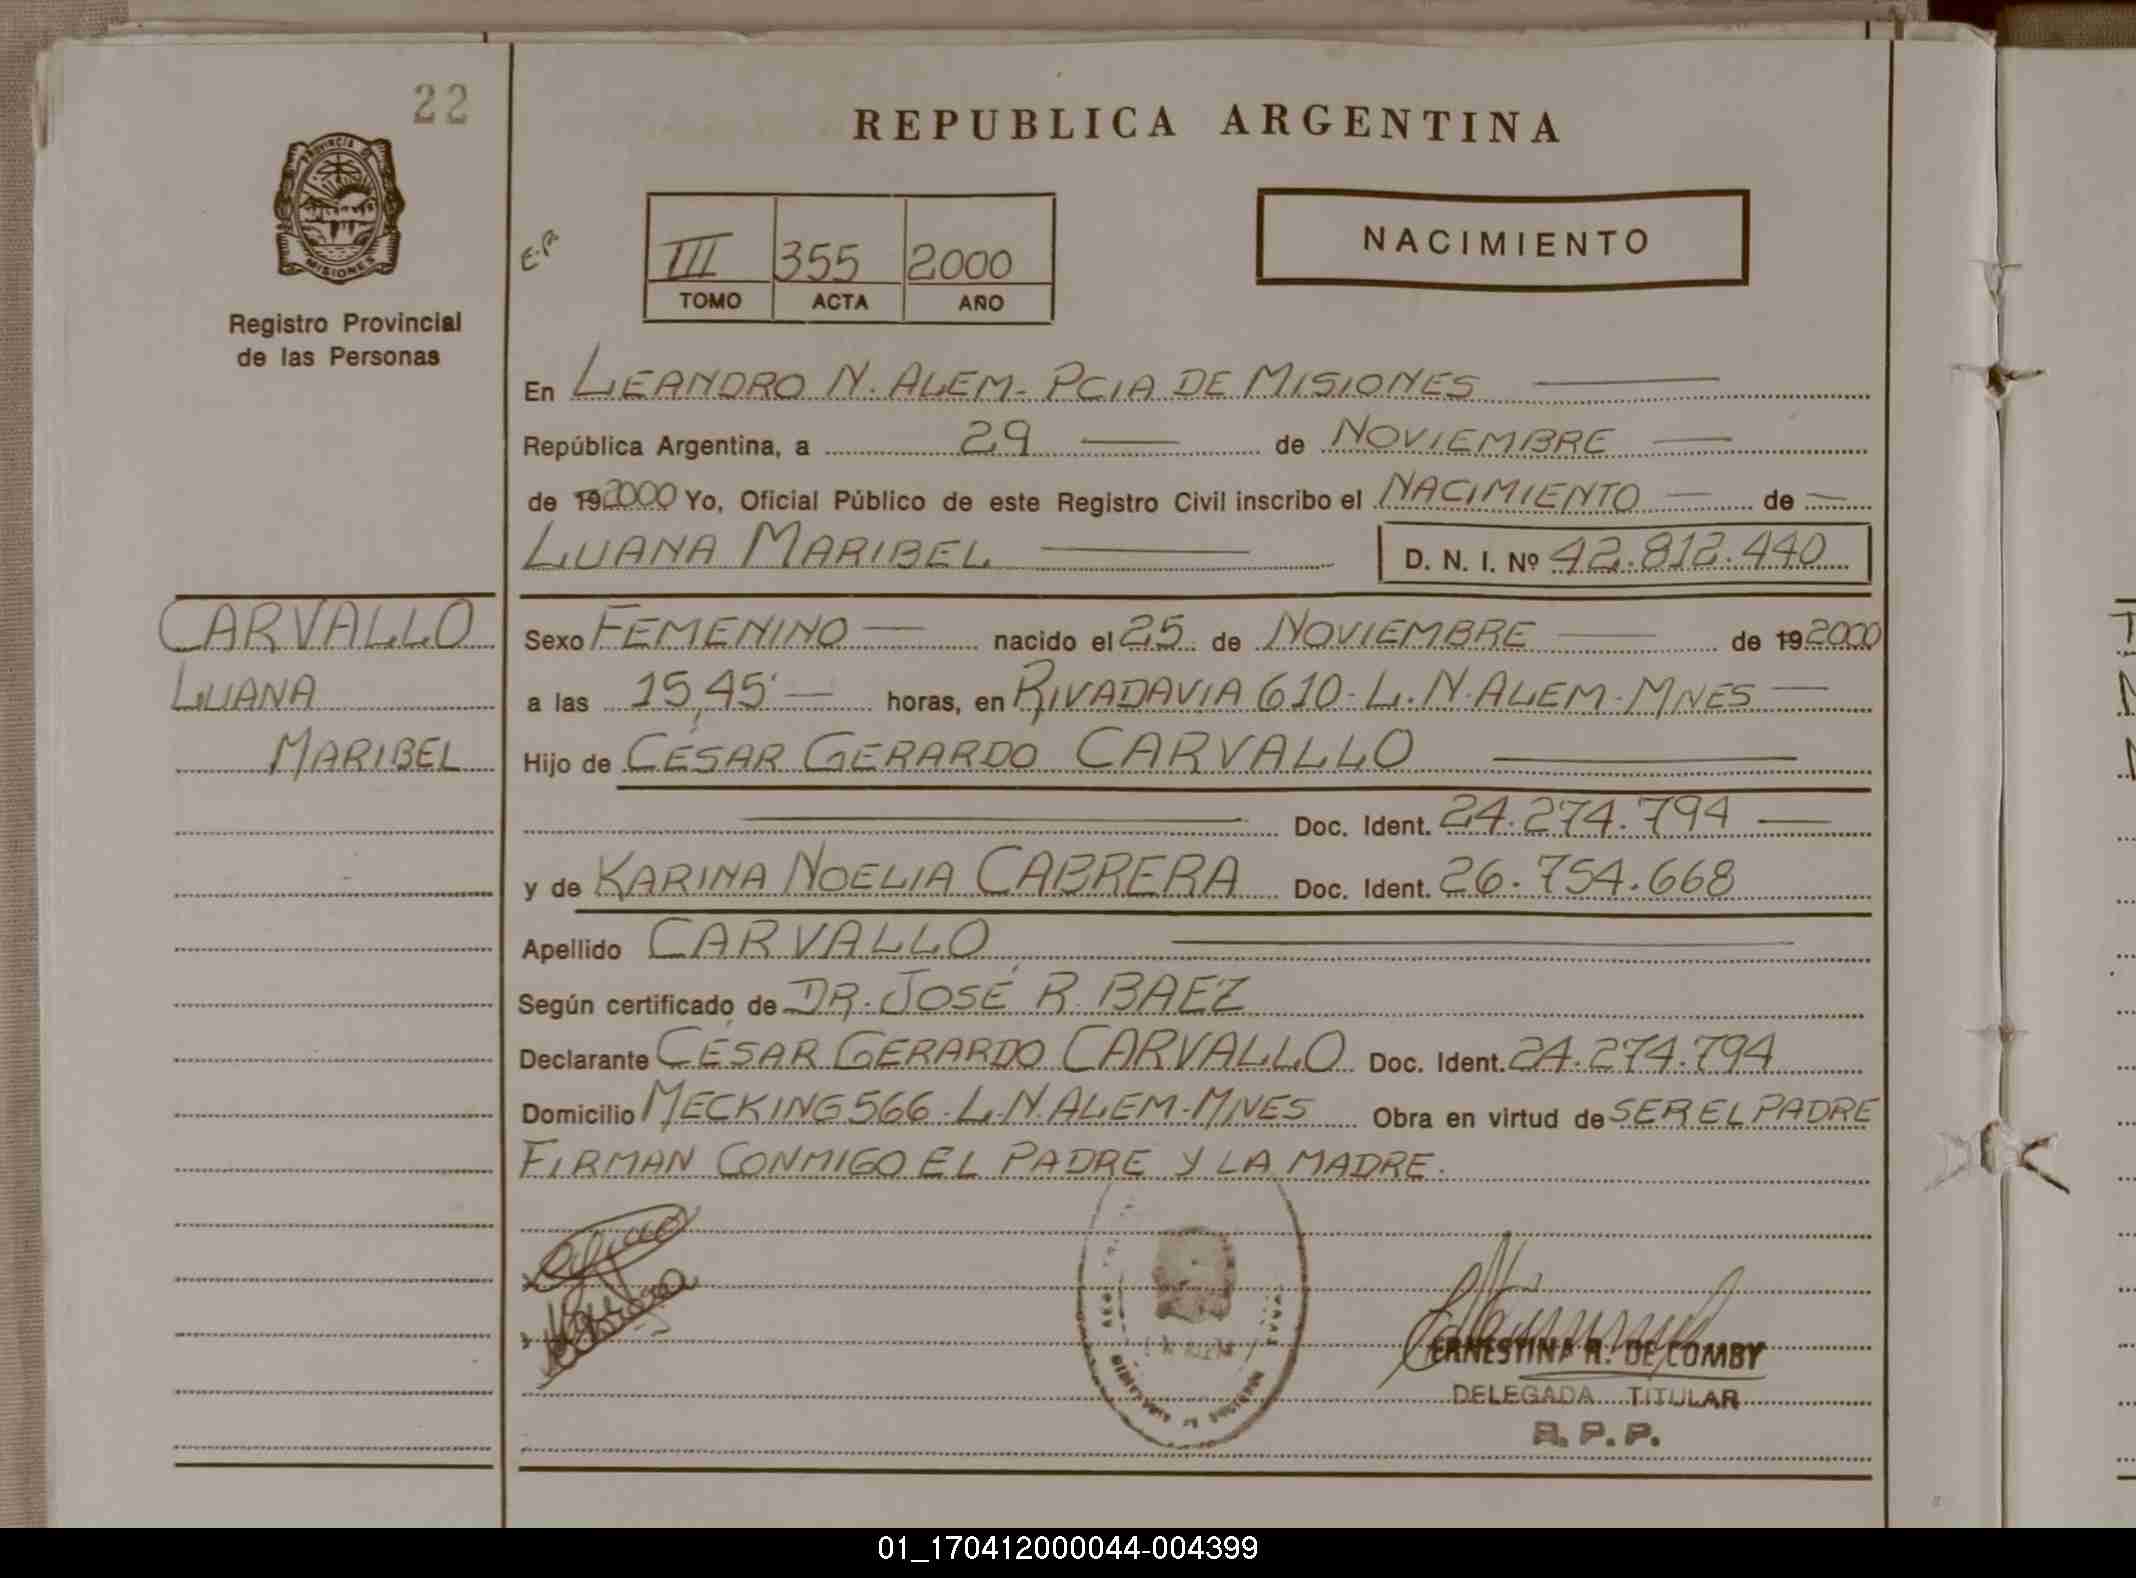 22
REPUBLICA ARGENTINA
PROVINCIA DE
MISIONES
Registro Provincial
de las Personas
E.R.
III 355 2000
TOMO ACTA AÑO
NACIMIENTO
En LEANDRO N. ALEM - PCIA DE MISIONES
República Argentina, a 29 de NOVIEMBRE
de 192000 Yo, Oficial Público de este Registro Civil inscribo el NACIMIENTO de
LUANA MARIBEL D. N. I. Nº 42.812.440
CARVALLO
LUANA
MARIBEL
Sexo FEMENINO nacido el 25 de NOVIEMBRE de 192000
a las 15,45' horas, en RIVADAVIA 610 - L. N. ALEM - MNES
Hijo de CÉSAR GERARDO CARVALLO
Doc. Ident. 24.274.794
y de KARINA NOELIA CABRERA Doc. Ident. 26.754.668
Apellido CARVALLO
Según certificado de DR. JOSÉ R. BAEZ
Declarante CÉSAR GERARDO CARVALLO Doc. Ident. 24.274.794
Domicilio MECKING 566 - L. N. ALEM - MNES Obra en virtud de SER EL PADRE
FIRMAN CONMIGO EL PADRE Y LA MADRE.
ERNESTINA R. DE COMBY
DELEGADA TITULAR
R. P. P.
01_170412000044-004399